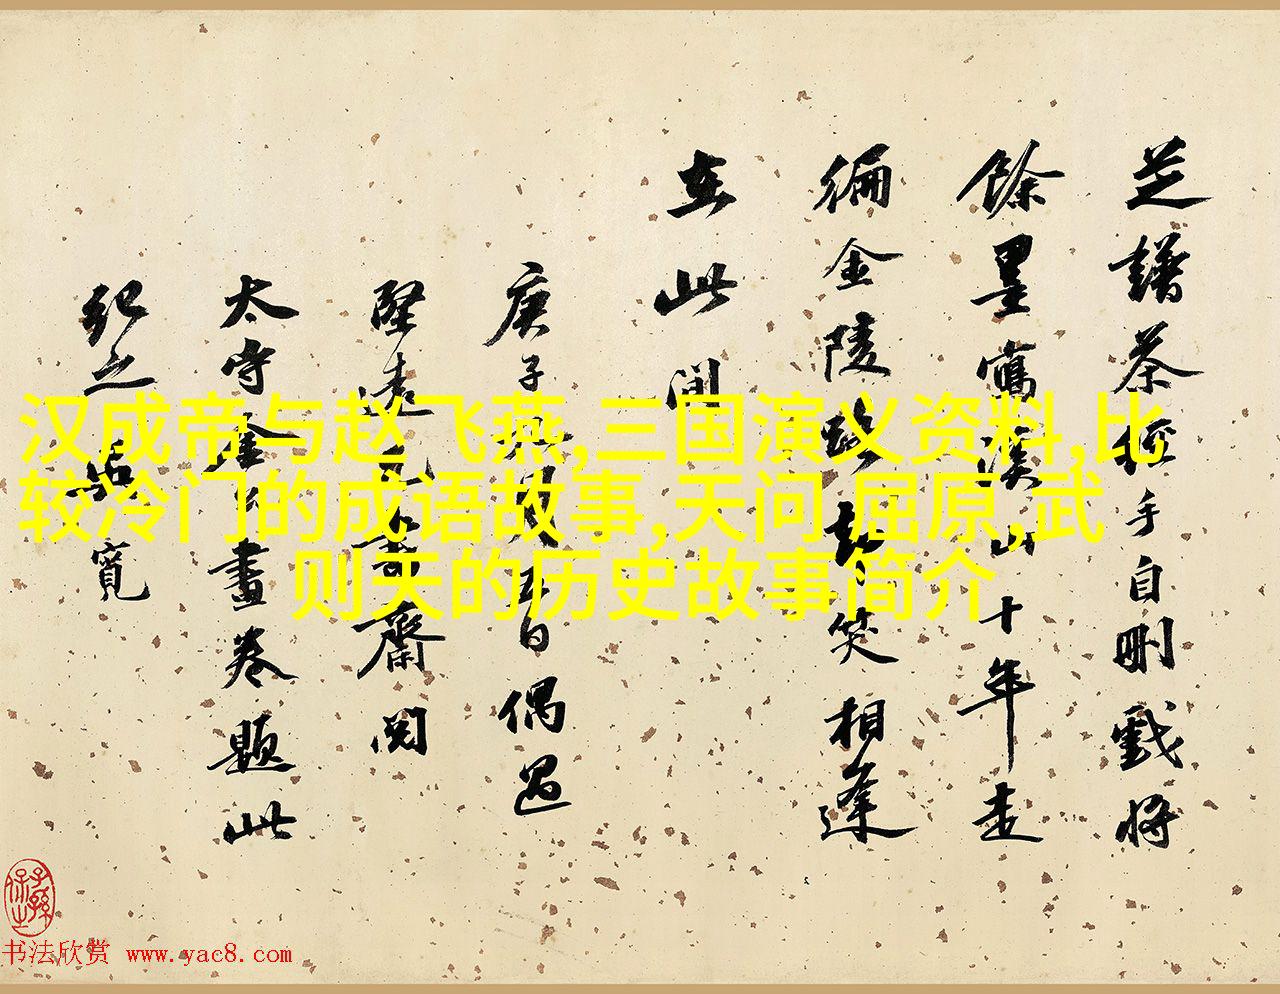 芝譜茶經手自刪戲將
餘墨寫溪山十年走
徧金陵路笑相逢
在此間
庚子月五日偶過
堅遠齋閱
太守畫卷題此
紀之寬
汉成帝与赵飞燕,三国演义资料,比
较冷门的成语故事,天问 屈原,武
则天的历史故事简介
书法欣赏 www.yac8.com